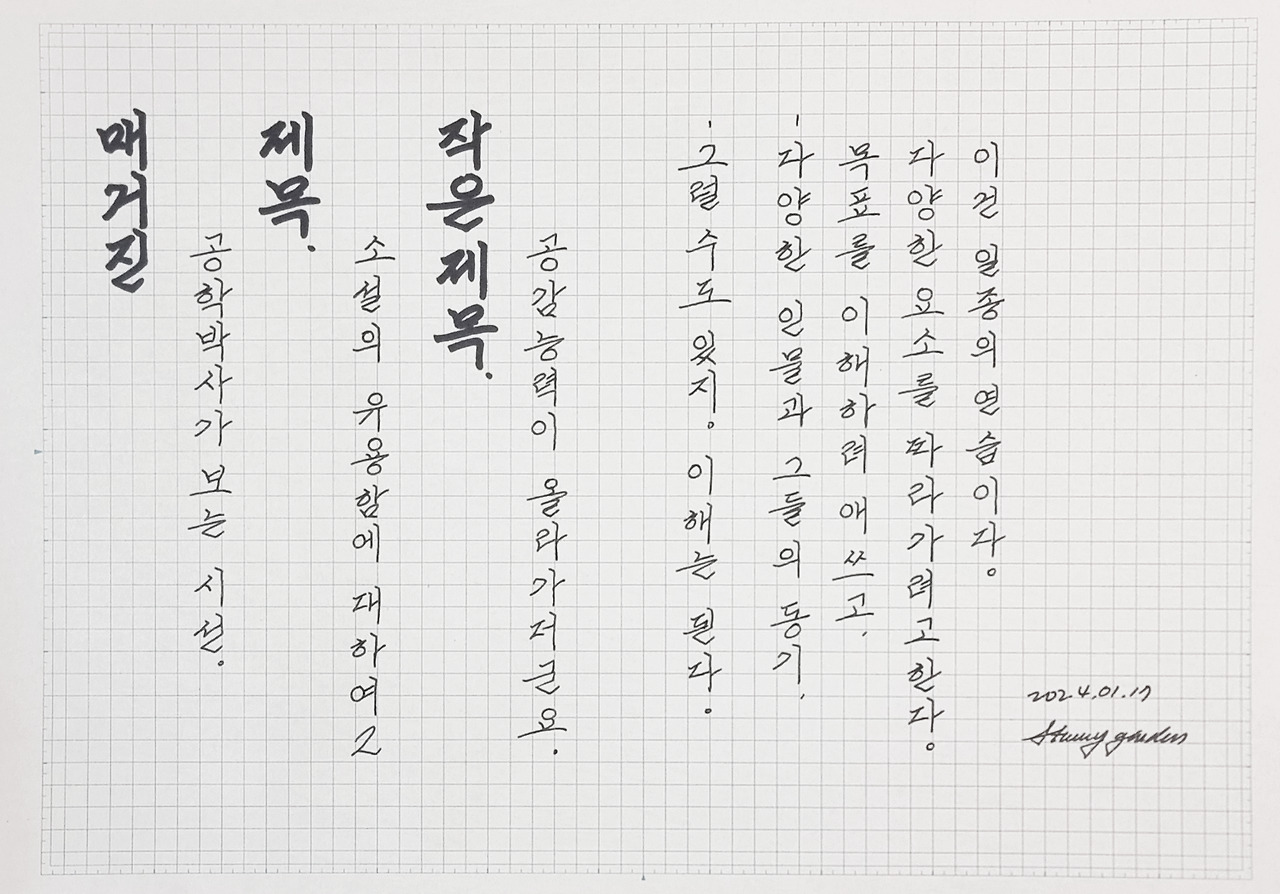 매거진
공학박사가 보는 시선.
제목.
소설의 유용함에 대하여2
작은제목.
공감능력이 올라가거든요.
- 그럴 수도 있지. 이해는 된다.
- 다양한 인물과 그들의 동기,
목표를 이해하려 애쓰고,
다양한 요소를 따라가려고한다.
이건 일종의연습이다.
2024.01.17
garden